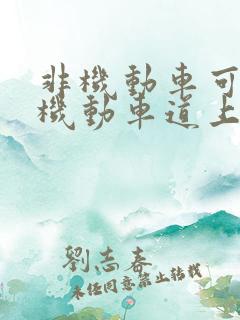 非機動車可
機動車道上
劉志春
未經同意禁止轉載